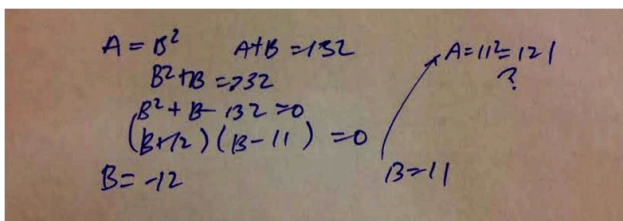 A = B² A+B = 132
B²+B = 132
B² + B - 132 = 0
(B+12)(B-11) = 0
B = -12 B = 11
A = 11² = 121
?